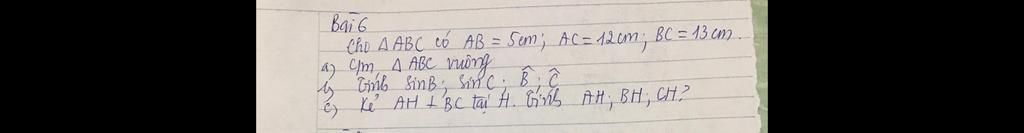 Bài 6
Cho △ABC có AB = 5cm; AC = 12cm; BC = 13cm.
a) C/m △ABC vuông
b) Tính SinB; SinC; B̂; Ĉ
c) Kẻ AH ⊥ BC tại H. Tính AH; BH; CH?